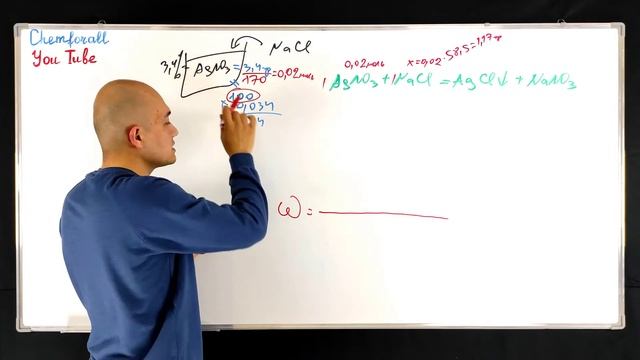 Chemforall
You Tube
NaCl
3,4% AgNO₃ = 3,4 г / 170 = 0,02 моль
100
0,034
4
0,02 моль x=0,02·58,5=1,17 г
1 AgNO₃ + 1 NaCl = AgCl↓ + NaNO₃
ω =